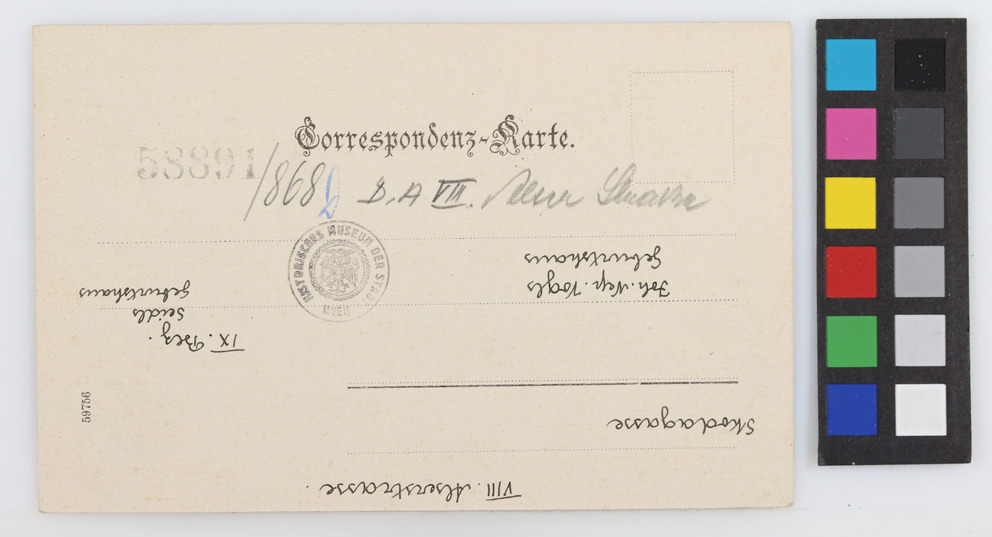 Correspondenz-Karte.
58891/868 D.A VIII. Alser Strasse
HISTORISCHES MUSEUM DER STADT WIEN
VIII. Alserstrasse.
Skodagasse
IX. Bez.
Seidls
Geburtshaus
Joh. Nep. Vogls
Geburtshaus
59756